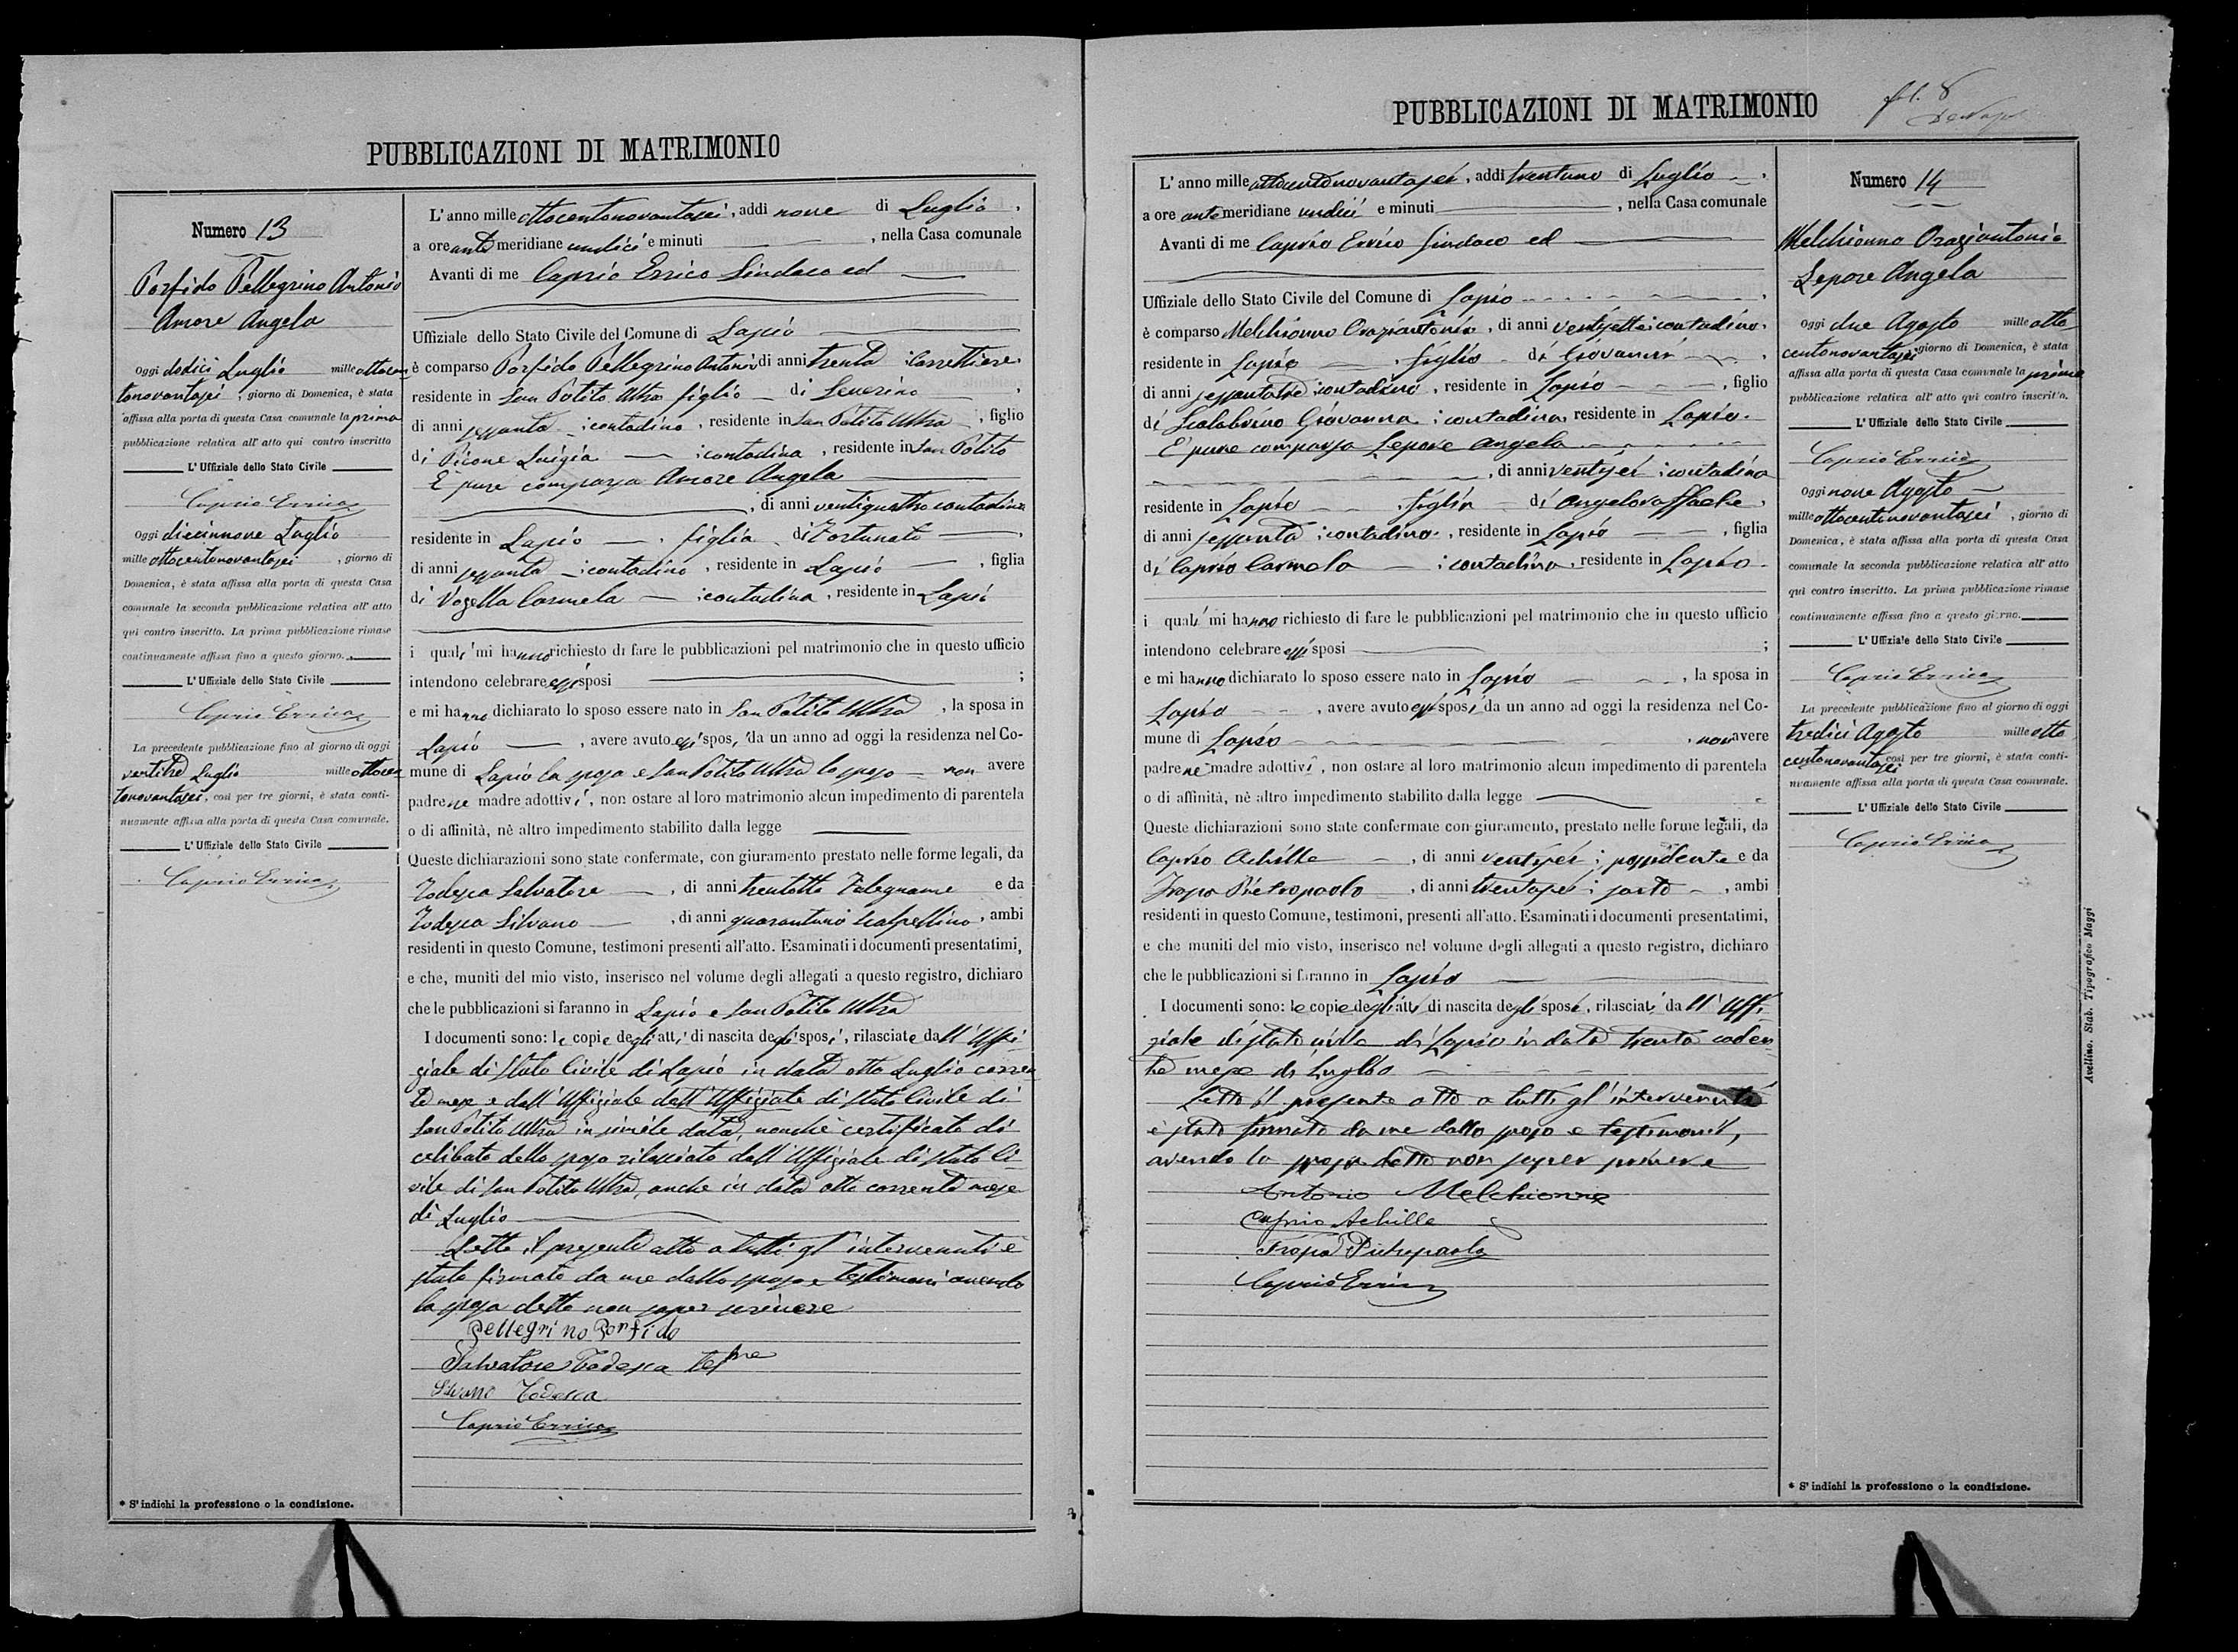 PUBBLICAZIONI DI MATRIMONIO
Numero 13
Porfido Pellegrino Antonio
Amore Angela
Oggi dodici Luglio mille ottocen
tonovantasei, giorno di Domenica, è stata
affissa alla porta di questa Casa comunale la prima
pubblicazione relativa all' atto qui contro inscritto
L' Uffiziale dello Stato Civile
Caprio Errico
Oggi diecinnove Luglio
mille ottocentonovantasei, giorno di
Domenica, è stata affissa alla porta di questa Casa
comunale la seconda pubblicazione relativa all' atto
qui contro inscritto. La prima pubblicazione rimase
continuamente affissa fino a questo giorno.
L' Uffiziale dello Stato Civile
Caprio Errico
La precedente pubblicazione fino al giorno di oggi
ventitre Luglio mille ottocen
tonovantasei, così per tre giorni, è stata conti-
nuamente affissa alla porta di questa Casa comunale.
L' Uffiziale dello Stato Civile
Caprio Errico
* S' indichi la professione o la condizione.
L' anno mille ottocentonovantasei, addi nove di Luglio,
a ore anti meridiane undici e minuti , nella Casa comunale
Avanti di me Caprio Errico Sindaco ed
Uffiziale dello Stato Civile del Comune di Lapio
è comparso Porfido Pellegrino Antonio di anni trenta carrettiere
residente in San Potito Ultra figlio di Severino,
di anni sessanta contadino, residente in San Potito Ultra, figlio
di Picone Luigia contadina, residente in San Potito
È pure comparsa Amore Angela
, di anni ventiquattro contadina
residente in Lapio, figlia di Fortunato
di anni sessanta contadino, residente in Lapio, figlia
di Vozella Carmela contadina, residente in Lapio
i quali mi hanno richiesto di fare le pubblicazioni pel matrimonio che in questo ufficio
intendono celebrare essi sposi ;
e mi hanno dichiarato lo sposo essere nato in San Potito Ultra, la sposa in
Lapio, avere avuto essi sposi da un anno ad oggi la residenza nel Co-
mune di Lapio la sposa e San Potito Ultra lo sposo non avere
padre ne madre adottivi, non ostare al loro matrimonio alcun impedimento di parentela
o di affinità, nè altro impedimento stabilito dalla legge
Queste dichiarazioni sono state confermate, con giuramento prestato nelle forme legali, da
Todesca Salvatore, di anni trentotto Falegname e da
Todesca Silvano, di anni quarantuno scalpellino, ambi
residenti in questo Comune, testimoni presenti all'atto. Esaminati i documenti presentatimi,
e che, muniti del mio visto, inserisco nel volume degli allegati a questo registro, dichiaro
che le pubblicazioni si faranno in Lapio e San Potito Ultra
I documenti sono: le copie degli atti di nascita degli sposi, rilasciate dall' Uffi-
ziale di Stato Civile di Lapio in data otto Luglio corren
te mese e dall' Uffiziale dell' Uffiziale di Stato Civile di
San Potito Ultra in simile data, nonchè certificato di
celibato dello sposo rilasciato dall' Uffiziale di Stato Ci-
vile di San Potito Ultra, anche in data otto corrente mese
di Luglio
Letto il presente atto a tutti gl' intervenuti è
stato firmato da me dallo sposo e testimoni avendo
la sposa detto non saper scrivere
Pellegrino Porfido
Salvatore Todesca
Silvano Todesca
Caprio Errico
PUBBLICAZIONI DI MATRIMONIO
L' anno mille ottocentonovantasei, addi trentuno di Luglio,
a ore anti meridiane undici e minuti , nella Casa comunale
Avanti di me Caprio Errico Sindaco ed
Uffiziale dello Stato Civile del Comune di Lapio,
è comparso Melchionno Oraziantonio, di anni ventisette contadino,
residente in Lapio, figlio di Giovanni,
di anni sessantatre contadino, residente in Lapio, figlio
di Scalabrino Giovanna contadina, residente in Lapio.
È pure comparsa Lepore Angela
, di anni ventisei contadina
residente in Lapio, figlia di Angeloraffaele,
di anni sessanta contadino, residente in Lapio, figlia
di Caprio Carmela contadina, residente in Lapio.
i quali mi hanno richiesto di fare le pubblicazioni pel matrimonio che in questo ufficio
intendono celebrare essi sposi ;
e mi hanno dichiarato lo sposo essere nato in Lapio, la sposa in
Lapio, avere avuto essi sposi da un anno ad oggi la residenza nel Co-
mune di Lapio, non avere
padre nè madre adottivi, non ostare al loro matrimonio alcun impedimento di parentela
o di affinità, nè altro impedimento stabilito dalla legge
Queste dichiarazioni sono state confermate con giuramento, prestato nelle forme legali, da
Caprio Achille, di anni ventisei; possidente e da
Fropa Pietropaolo, di anni trentasei; sarto, ambi
residenti in questo Comune, testimoni, presenti all'atto. Esaminati i documenti presentatimi,
e che muniti del mio visto, inserisco nel volume degli allegati a questo registro, dichiaro
che le pubblicazioni si faranno in Lapio
I documenti sono: le copie degli atti di nascita degli sposi, rilasciati dall' Uffi-
ziale di stato civile di Lapio in data trenta caden
te mese di Luglio
Letto il presente atto a tutti gl' intervenuti
è stato firmato da me dallo sposo e testimonii,
avendo la sposa detto non saper scrivere
Antonio Melchionna
Caprio Achille
Fropa Pietropaolo
Caprio Errico
fl. 8
Numero 14
Melchionno Oraziantonio
Lepore Angela
Oggi due Agosto mille otto
centonovantasei giorno di Domenica, è stata
affissa alla porta di questa Casa comunale la prima
pubblicazione relativa all' atto qui contro inscritto.
L' Uffiziale dello Stato Civile
Caprio Errico
Oggi nove Agosto
mille ottocentonovantasei, giorno di
Domenica, è stata affissa alla porta di questa Casa
comunale la seconda pubblicazione relativa all' atto
qui contro inscritto. La prima pubblicazione rimase
continuamente affissa fino a questo giorno.
L' Uffiziale dello Stato Civile
Caprio Errico
La precedente pubblicazione fino al giorno di oggi
tredici Agosto mille otto
centonovantasei così per tre giorni, è stata conti-
nuamente affissa alla porta di questa Casa comunale.
L' Uffiziale dello Stato Civile
Caprio Errico
* S' indichi la professione o la condizione.
Avellino. Stab. Tipografico Maggi